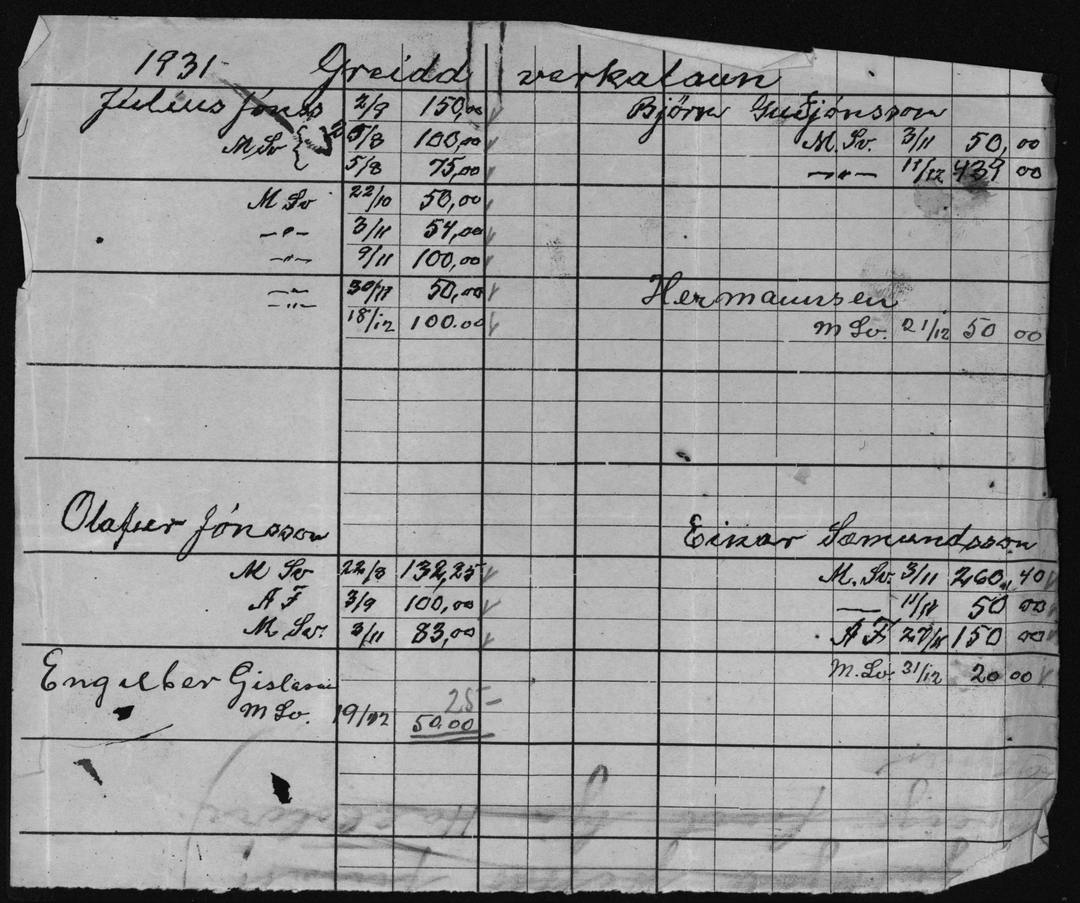 1931 Greidd verkalaun
Julius Jónss 2/9 150,00
M, Sv 5/8 100,00
5/8 75,00
M Sv 22/10 50,00
—"— 3/11 54,00
—"— 9/11 100,00
—"— 30/11 50,00
—"— 18/12 100.00
Olafur Jónsson
M Sv 22/8 132,25
A F 3/9 100,00
M. Sv. 3/11 83,00
Engilber Gislason
25-
M Sv. 19/12 50.00
Bjørn Guðjónsson
M. Sv. 3/11 50,00
—"— 11/12 439 00
Hermannsen
M Sv. 21/12 50 00
Einar Sæmundsson
M. Sv. 3/11 260,40
— 11/11 50 00
A F 27/11 150 00
M. Sv. 31/12 20 00